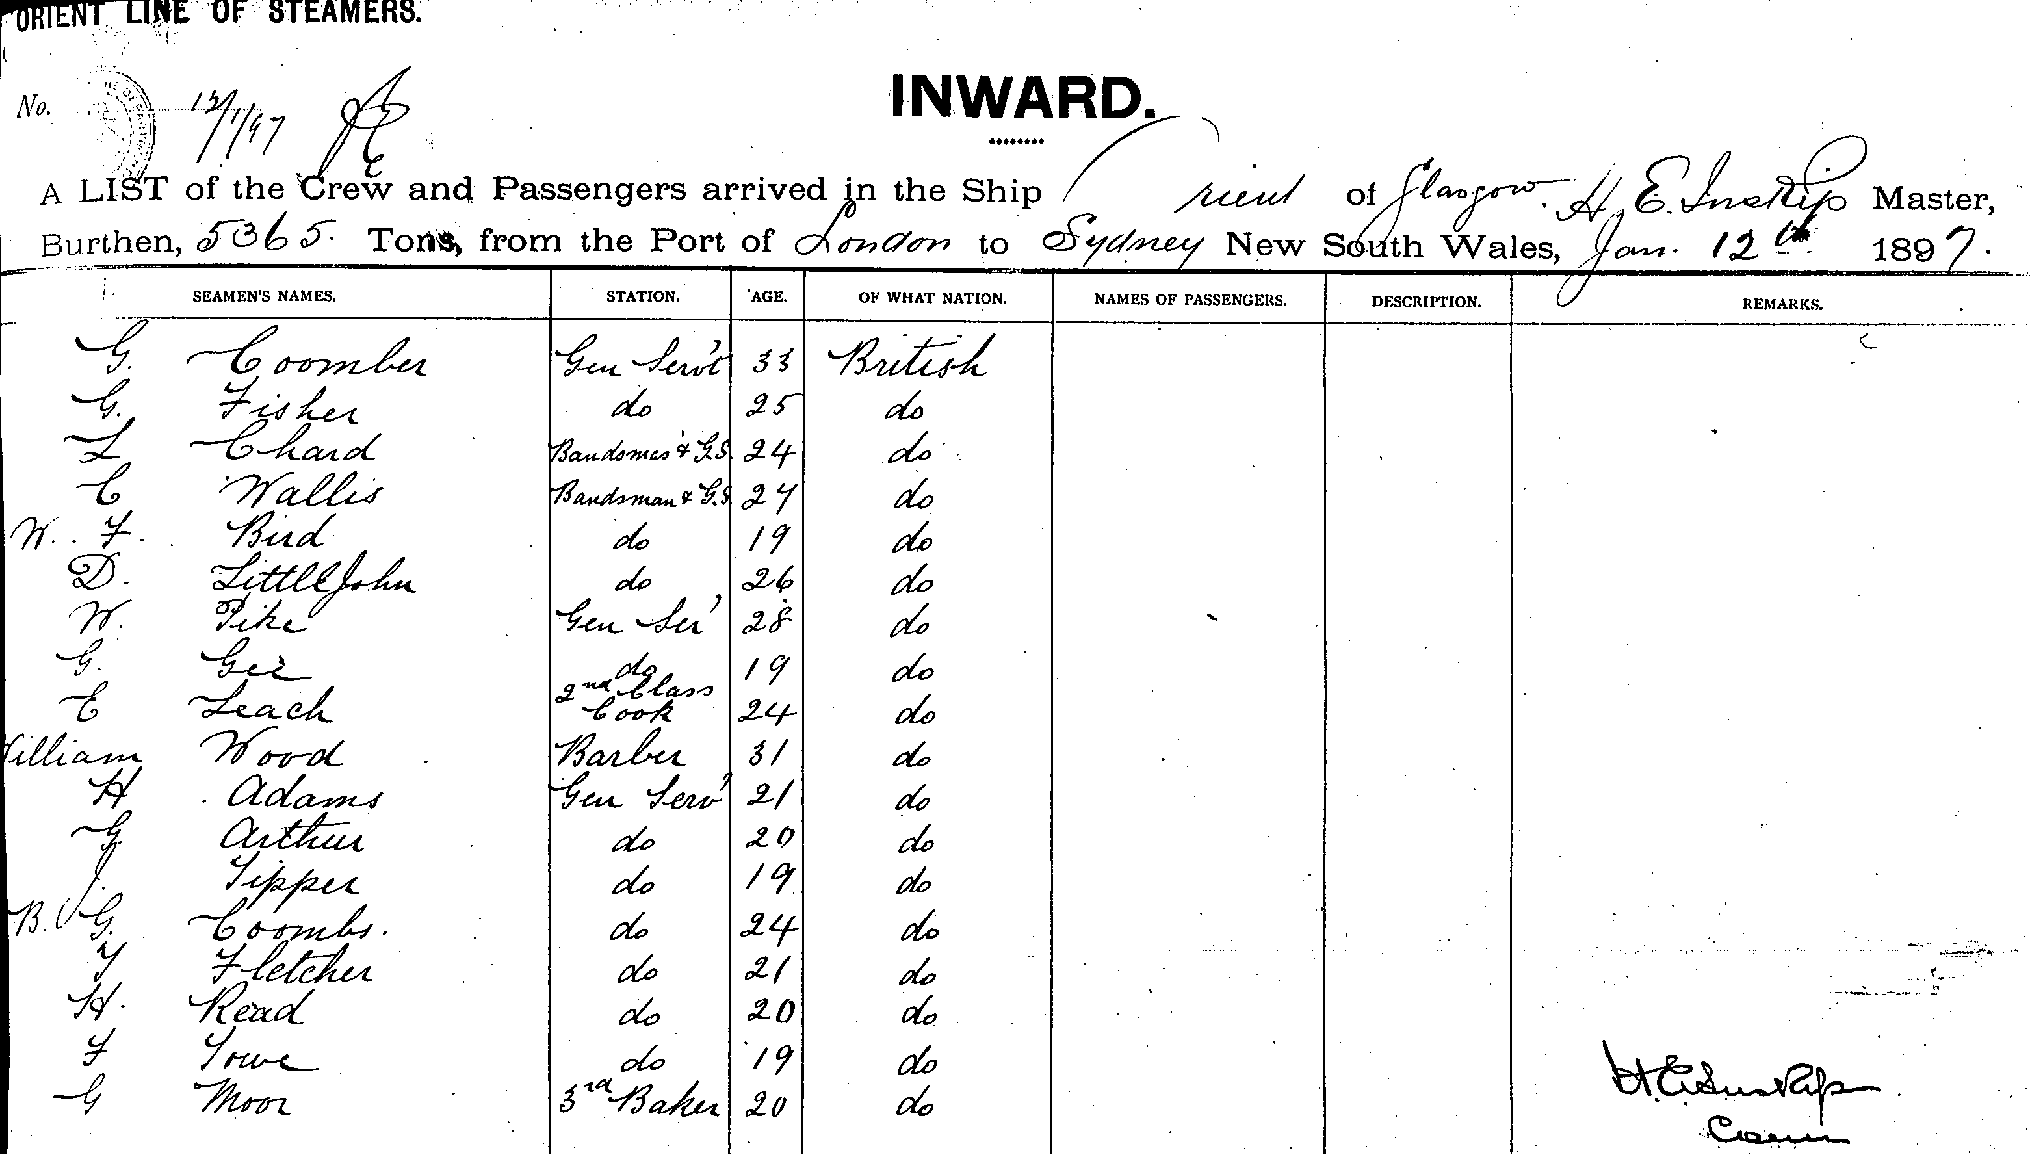 ORIENT LINE OF STEAMERS.
INWARD.
No. 12/1/97
A LIST of the Crew and Passengers arrived in the Ship Orient of Glasgow. H. E. Inskip Master,
Burthen, 5365. Tons, from the Port of London to Sydney New South Wales, Jan. 12th 1897.
SEAMEN'S NAMES. STATION. AGE. OF WHAT NATION. NAMES OF PASSENGERS. DESCRIPTION. REMARKS.
G. Coomber Gen Serv't 33 British
G. Fisher do 25 do
L Chard Bandsman & G.S. 24 do
C Wallis Bandsman & G.S. 27 do
W. F. Bird do 19 do
D. LittleJohn do 26 do
W. Pike Gen Ser' 28 do
G. Gee do 19 do
E Leach 2nd Class Cook 24 do
William Wood Barber 31 do
H Adams Gen Serv' 21 do
G. Arthur do 20 do
J. Tipper do 19 do
B. G. Coombs. do 24 do
Fletcher do 21 do
H. Read do 20 do
F do 19 do
G Moor 3rd Baker 20 do
H. E. Inskip